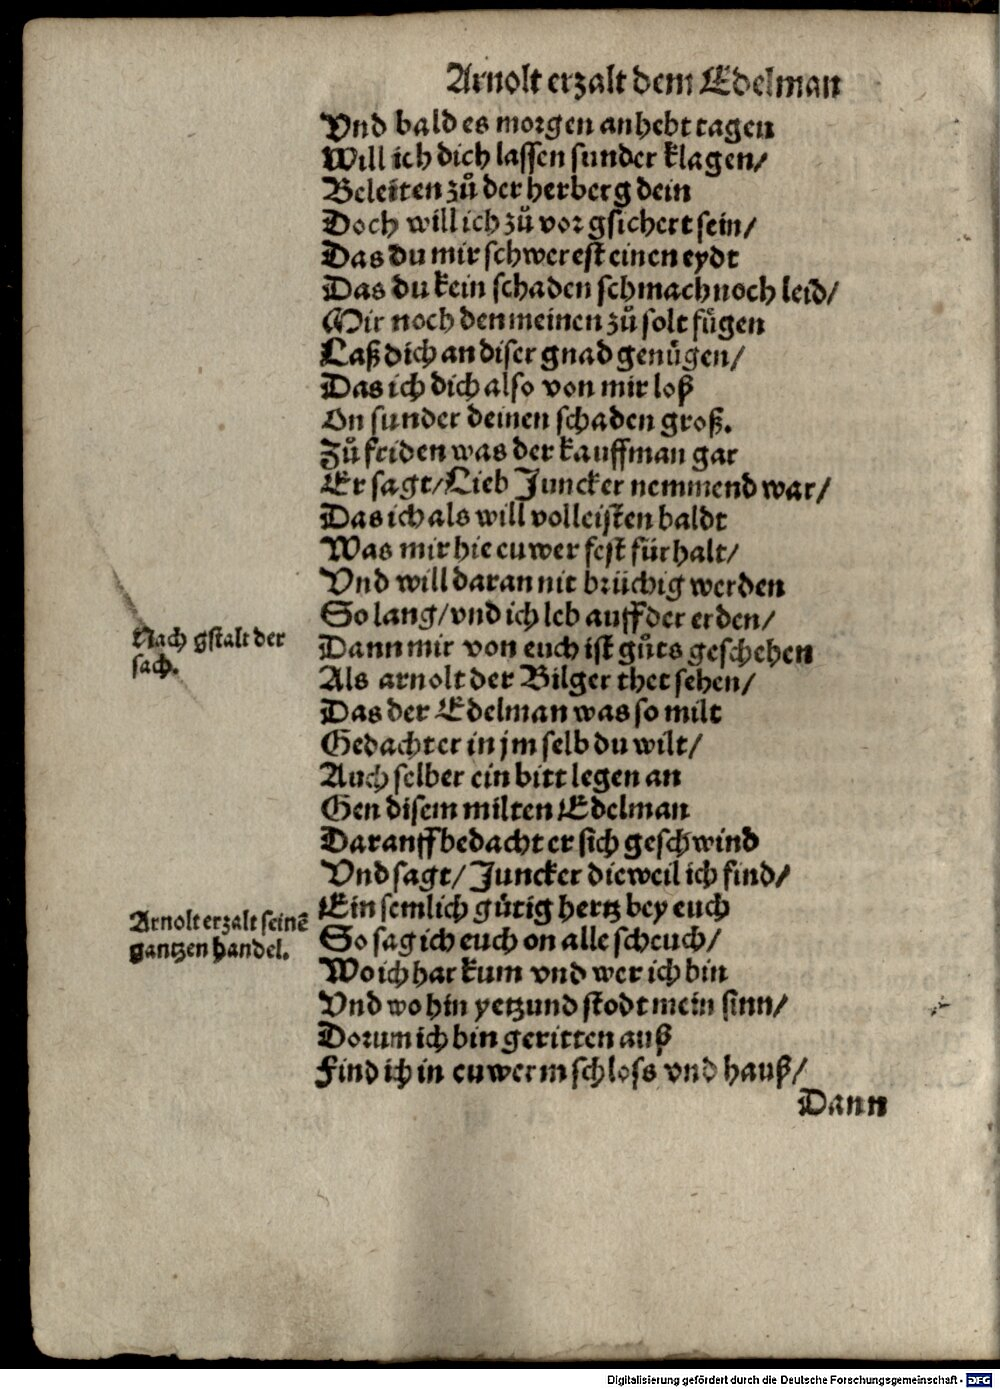 Arnolt erzalt dem Edelman
Vnd bald es morgen anhebt tagen
Will ich dich lassen sunder klagen/
Beleiten zů der herberg dein
Doch will ich zů vor gsichert sein/
Das du mir schwerest einen eydt
Das du kein schaden schmach noch leid/
Mir noch den meinen zů solt fügen
Laß dich an diser gnad genügen/
Das ich dich also von mir loß
On sunder deinen schaden groß.
Zů friden was der kauffman gar
Er sagt/ Lieb Juncker nemmend war/
Das ich als will volleisten baldt
Was mir hie euwer fest fürhalt/
Vnd will daran nit brüchig werden
So lang/ vnd ich leb auff der erden/
Nach gstalt der
sach.
Dann mir von euch ist gůts geschehen
Als arnolt der Bilger thet sehen/
Das der Edelman was so milt
Gedacht er in jm selb du wilt/
Auch selber ein bitt legen an
Gen disem milten Edelman
Darauff bedacht er sich geschwind
Vnd sagt/ Juncker dieweil ich find/
Arnolt erzalt seinē
gantzen handel.
Ein semlich gütig hertz bey euch
So sag ich euch on alle scheuch/
Wo ich har kum vnd wer ich bin
Vnd wo hin yetzund stodt mein sinn/
Dorum ich bin geritten auß
Find ich in euwerm schloss vnd hauß/
Dann
Digitalisierung gefördert durch die Deutsche Forschungsgemeinschaft - DFG